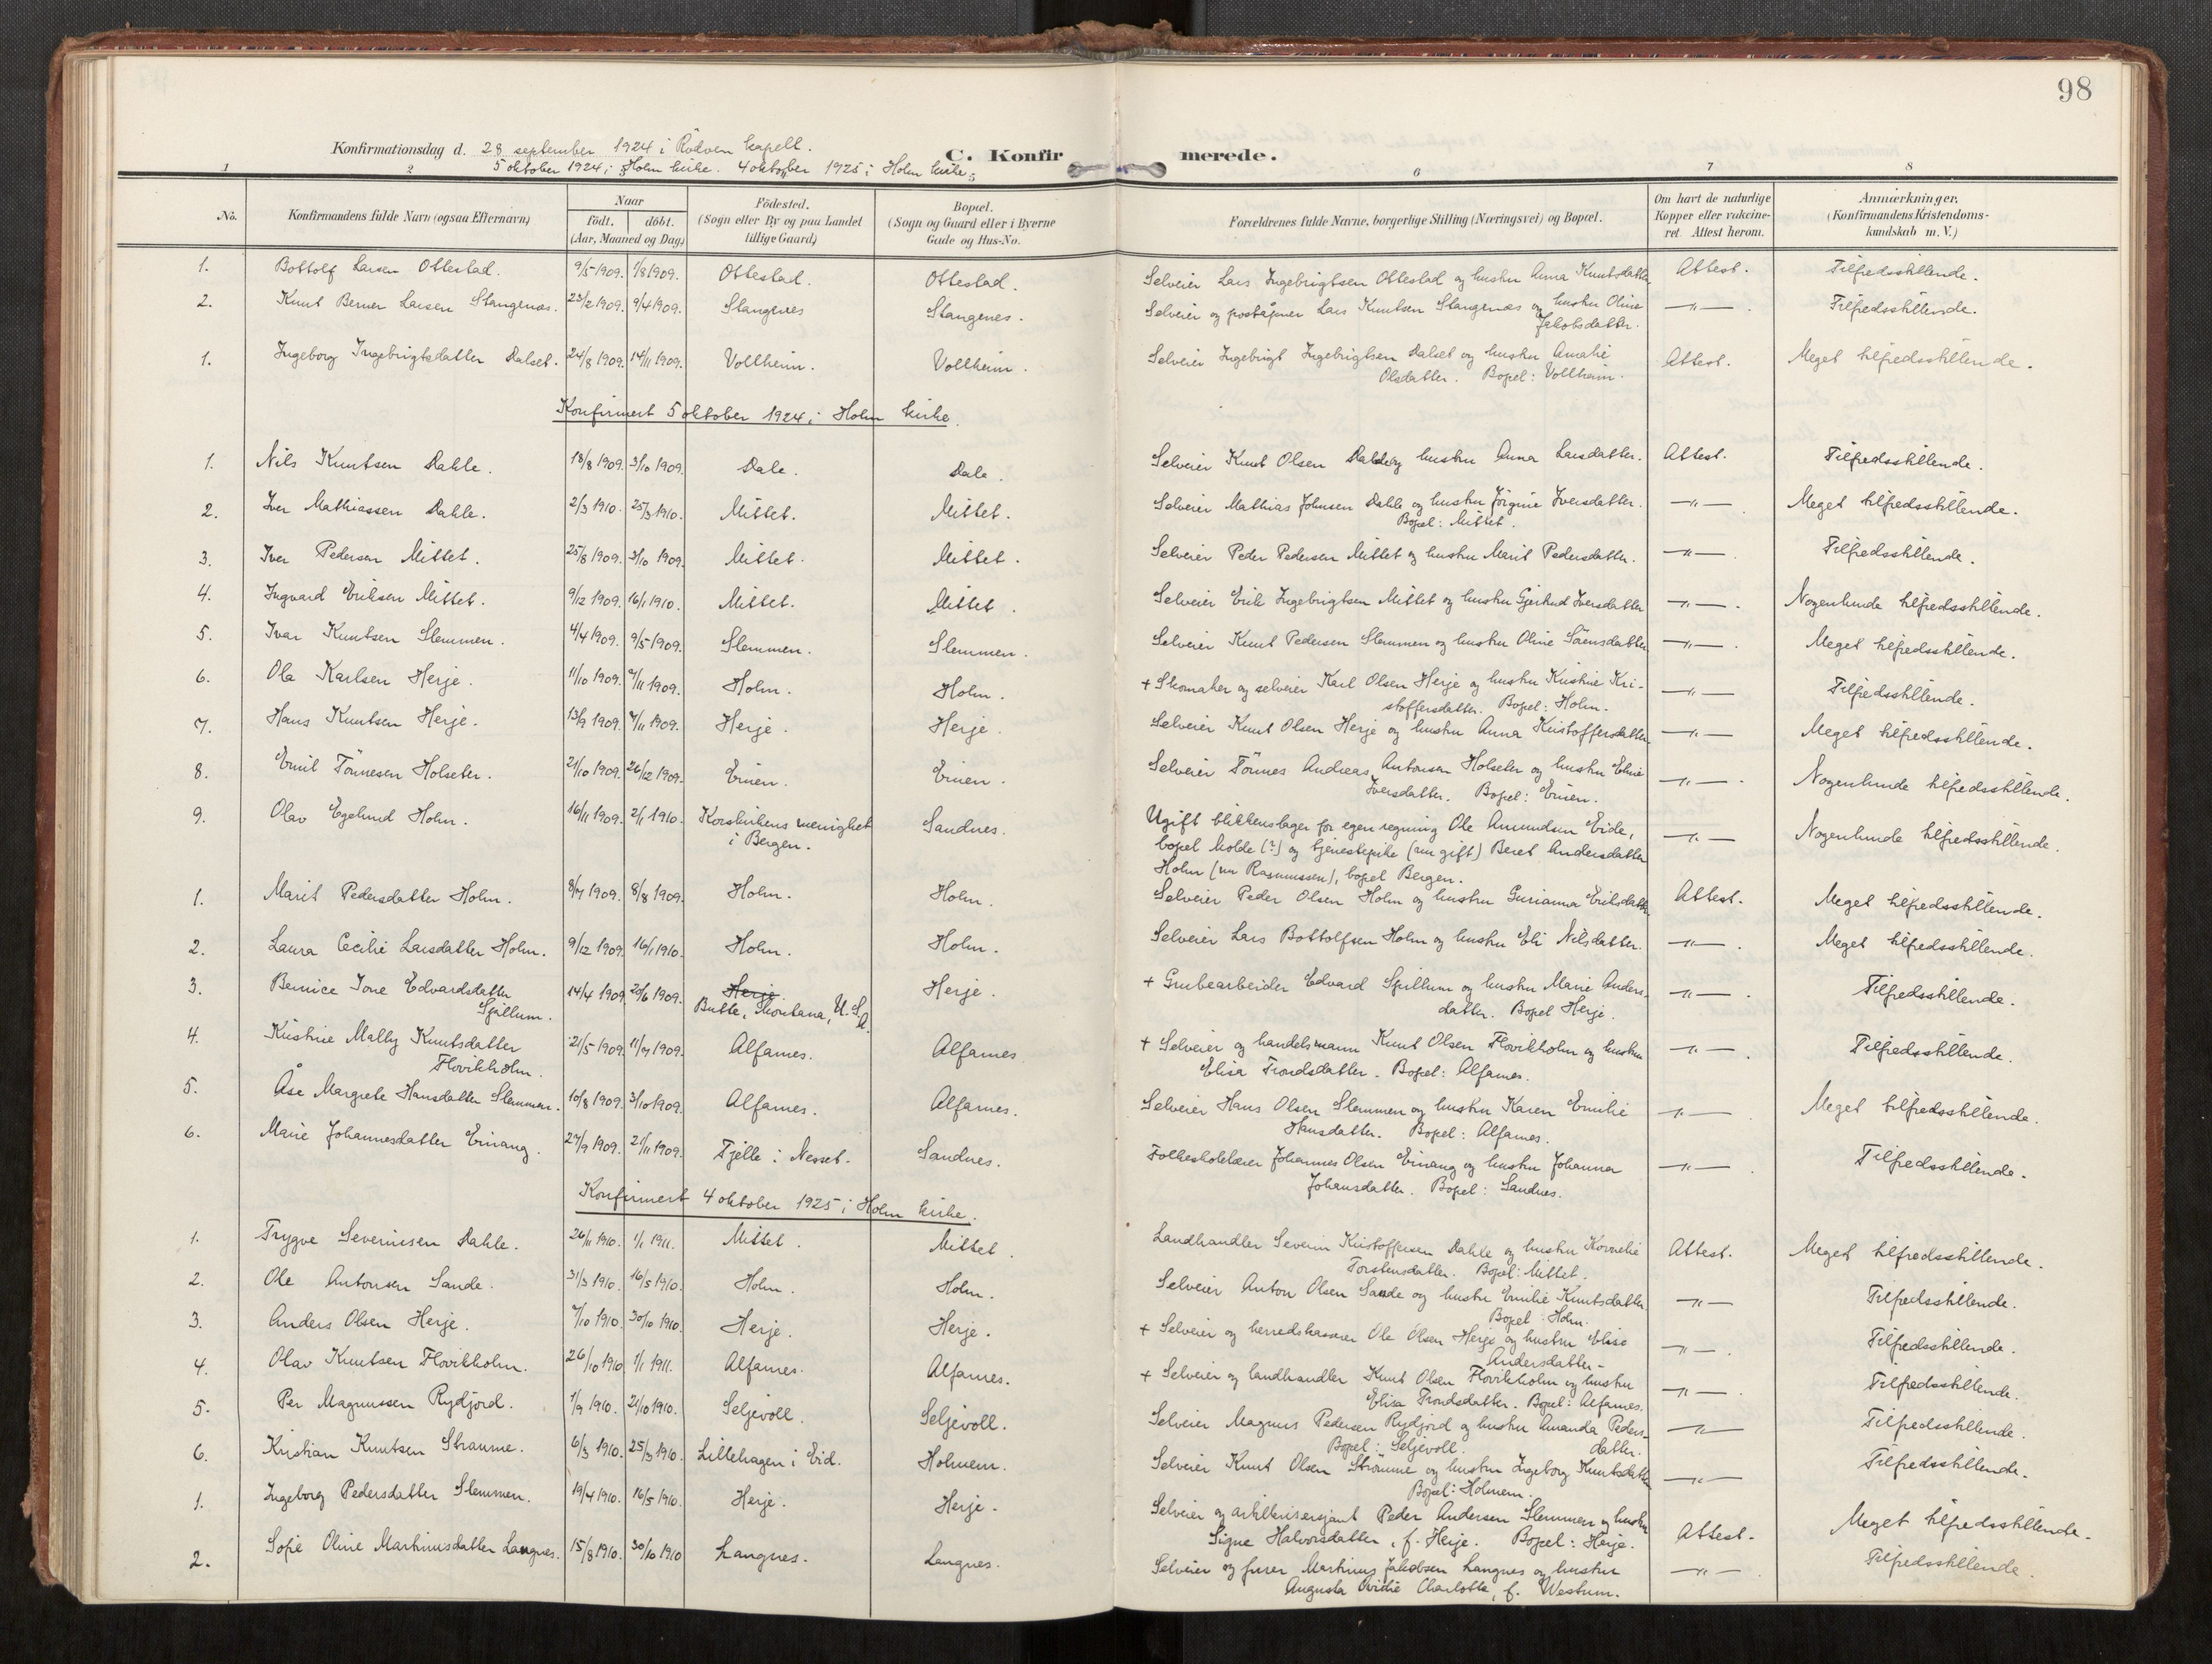 98
Konfirmationsdag d. 28 september 1924 i Rödven kapell.
5 oktober 1924 i Holm kirke. 4 oktober 1925 i Holm kirke.
C. Konfirmerede.
1 2 3 4 5 6 7 8
No. Konfirmandens fulde Navn (ogsaa Efternavn) Naar födt. döbt. (Aar, Maaned og Dag) Födested. (Sogn eller By og paa Landet tillige Gaard) Bopæl. (Sogn og Gaard eller i Byerne Gade og Hus-No. Forældrenes fulde Navne, borgerlige Stilling (Næringsvei) og Bopæl. Om havt de naturlige Kopper eller vakcineret. Attest herom. Anmærkninger. (Konfirmandens Kristendomskundskab m. V.)
1. Bottolf Larsen Ottestad. 9/5 1909. 1/8 1909. Ottestad. Ottestad. Selveier Lars Ingebrigtsen Ottestad og hustru Anna Knutsdatter Attest. Tilfredsstillende.
2. Knut Berner Larsen Stangenes. 23/2 1909. 9/4 1909. Stangenes Stangenes. Selveier og poståpner Lars Knutsen Stangenæs og hustru Oline Jakobsdatter. —"— Tilfredsstillende.
1. Ingeborg Ingebrigtsdatter Dalset. 24/8 1909. 14/11 1909. Vollheim. Vollheim. Selveier Ingebrigt Ingebrigtsen Dalset og hustru Amalie
Olsdatter. Bopel: Vollheim. Attest. Meget tilfredsstillende.
Konfirmert 5 oktober 1924 i Holm kirke.
1. Nils Knutsen Dahle. 18/8 1909. 3/10 1909. Dale. Dale. Selveier Knut Olsen Dahle og hustru Anna Larsdatter. Attest. Tilfredsstillende.
2. Iver Mathiassen Dahle. 2/3 1910. 25/3 1910. Mittet. Mittet. Selveier Mathias Johnsen Dahle og hustru Jörgine Iversdatter.
Bopel: Mittet. —"— Meget tilfredsstillende.
3. Iver Pedersen Mittet. 25/8 1909. 3/10 1909. Mittet. Mittet. Selveier Peder Pedersen Mittet og hustru Marit Pedersdatter. —"— Tilfredsstillende.
4. Ingvard Eriksen Mittet. 9/12 1909. 16/1 1910. Mittet. Mittet. Selveier Erik Ingebrigtsen Mittet og hustru Gjertrud Iversdatter —"—. Nogenlunde tilfredsstillende.
5. Ivar Knutsen Slemmen. 4/4 1909. 9/5 1909. Slemmen. Slemmen. Selveier Knut Pedersen Slemmen og hustru Oline Sörensdatter —"—. Meget tilfredsstillende.
6. Ola Karlsen Herje. 11/10 1909. 7/11 1909. Holm. Holm. + Skomaker og selveier Karl Olsen Herje og hustru Kristine Kri-
stoffersdatter. Bopel: Holm. —"— Tilfredsstillende.
7. Hans Knutsen Herje. 13/9 1909. 7/11 1909. Herje. Herje. Selveier Knut Olsen Herje og hustru Anna Kristoffersdatter —"— Meget tilfredsstillende.
8. Emil Tönnesen Holseter. 21/10 1909. 26/12 1909. Erien. Erien. Selveier Tönnes Andreas Antonsen Holseter og hustru Eline
Iversdatter. Bopel: Erien. —"—. Nogenlunde tilfredsstillende.
9. Olav Egelund Holm. 16/11 1909. 2/1 1910. Korskirkens menighet i Bergen. Sandnes. Ugift blikkenslager for egen regning Ole Amundsen Eide,
bopel Molde (?) og tjenestepike (nu gift) Beret Andersdatter
Holm (nu Rasmussen), bopel Bergen. —"— Nogenlunde tilfredsstillende.
1. Marit Pedersdatter Holm. 8/7 1909. 8/8 1909. Holm. Holm. Selveier Peder Olsen Holm og hustru Gurianna Eriksdatter Attest. Meget tilfredsstillende.
2. Laura Cecilie Larsdatter Holm. 9/12 1909. 16/1 1910. Holm. Holm. Selveier Lars Bottolfsen Holm og hustru Eli Nilsdatter. —"—. Meget tilfredsstillende.
3. Bernice Ione Edvardsdatter
Spillum. 14/4 1909. 20/6 1909. Herje. Butte, Montana, U.S.A. Herje. + Grubearbeider Edvard Spillum og hustru Marie Anders-
datter. Bopel Herje. —"—. Tilfredsstillende.
4. Kristine Mally Knutsdatter
Flovikholm. 21/5 1909. 11/7 1909. Alfarnes. Alfarnes + Selveier og handelsmann Knut Olsen Flovikholm og hustru
Elisa Trondsdatter. Bopel: Alfarnes. —"—. Tilfredsstillende.
5. Åse Margrete Hansdatter Slemmen. 10/8 1909. 3/10 1909. Alfarnes. Alfarnes. Selveier Hans Olsen Slemmen og hustru Karen Emilie
Hansdatter. Bopel: Alfarnes. —"— Meget tilfredsstillende.
6. Marie Johannesdatter Einang. 27/9 1909. 21/11 1909. Tjelle i Nesset. Sandnes. Folkeskolelærer Johannes Olsen Einang og hustru Johanna
Johansdatter. Bopel: Sandnes. —"—. Tilfredsstillende.
Konfirmert 4 oktober 1925 i Holm kirke.
1. Trygve Severinsen Dahle. 26/11 1910. 1/1 1911. Mittet. Mittet. Landhandler Severin Kristoffersen Dahle og hustru Kornelie
Torstensdatter. Bopel: Mittet. Attest. Meget tilfredsstillende.
2. Ole Antonsen Sande. 31/3 1910. 16/5 1910. Holm. Holm. Selveier Anton Olsen Sande og hustru Emilie Knutsdatter
Bopel: Holm. —"— Tilfredsstillende.
3. Anders Olsen Herje. 7/10 1910. 30/10 1910. Herje. Herje. + Selveier og herredskasserer Ole Olsen Herje og hustru Elise
Andersdatter — —"—. Tilfredsstillende.
4. Olav Knutsen Flovikholm. 26/10 1910 1/1 1911. Alfarnes. Alfarnes. + Selveier og landhandler Knut Olsen Flovikholm og hustru
Elisa Trondsdatter. Bopel: Alfarnes. —"—. Tilfredsstillende.
5. Per Magnussen Rydjord. 1/9 1910. 21/10 1910. Seljevoll. Seljevoll. Selveier Magnus Pedersen Rydjord og hustru Amanda Peders-
Bopel: Seljevoll. datter. —"— Tilfredsstillende.
6. Kristian Knutsen Straume. 6/3 1910. 25/3 1910. Lillehagen i Eid. Holmem. Selveier Knut Olsen Strömme og hustru Ingeborg Knutsdatter
Bopel: Holmem. —"— Tilfredsstillende.
1. Ingeborg Pedersdatter Slemmen. 19/4 1910. 16/5 1910. Herje. Herje. Selveier og artillerisersjant Peder Andersen Slemmen og hustru
Signe Halvorsdatter, f. Herje. Bopel: Herje. Attest. Meget tilfredsstillende.
2. Sofie Oline Martinusdatter Langnes. 15/8 1910. 30/10 1910 Langnes. Langnes. Selveier og furer Martinus Jakobsen Langnes og hustru
Augusta Charlotte, f. Westum. —"—. Tilfredsstillende.